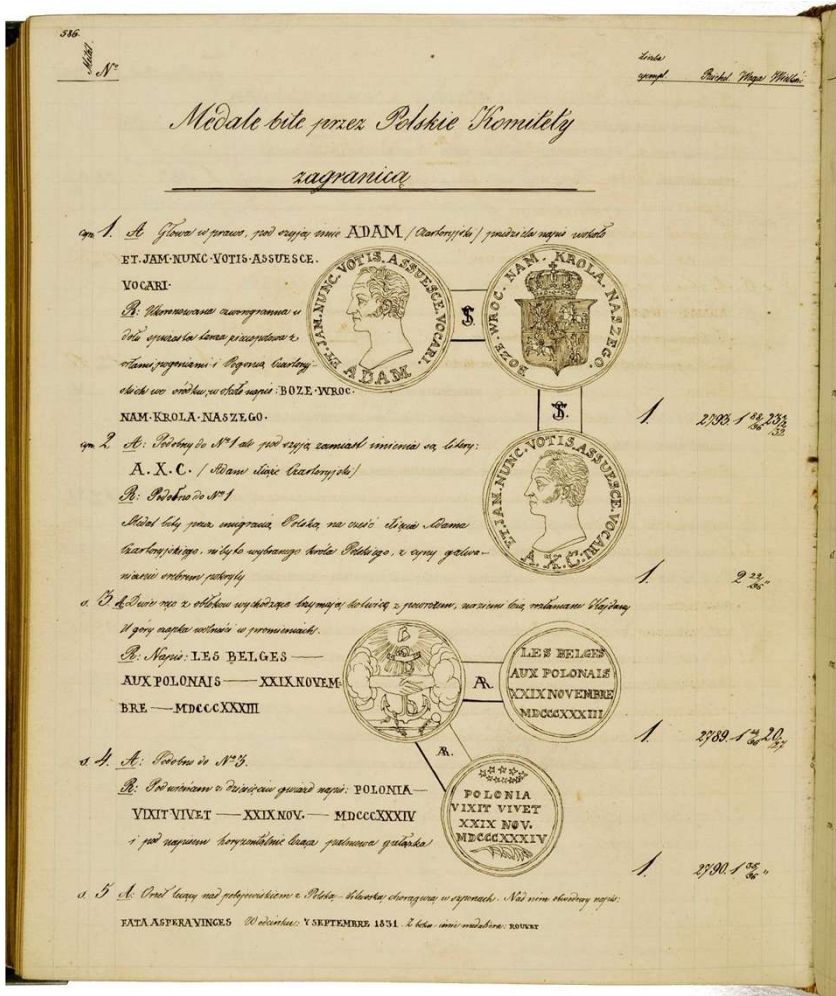 586.
Metal Nº
Liczba
exempl. Raichel Waga Wielkość
Medale bite przez Polskie Komitety
zagranicą
cyn. 1. A Głowa w prawo, pod szyją imie ADAM (Czartoryski) powyżej napis wokoło
ET·JAM·NUNC·VOTIS·ASSUESCE.
VOCARI·
R: Ukoronowana czworogranna u
dołu tarcza
orłami, pogoniami i Pogonią Czartory-
skich we środku, wokoło napis: BOZE·WROC·
NAM·KROLA·NASZEGO.
1. 2793. 1 88/96
ET·JAM·NUNC·VOTIS·ASSUESCE·VOCARI·
ADAM
BOZE·WROC·NAM·KROLA·NASZEGO
cyn. 2 A: Podobny do Nº 1 ale pod szyją zamiast imienia są litery:
A. X. C. (Adam Xiąże Czartoryjski)
R: Podobno do Nº 1
Medal bity przez emigracią Polską, na cześć Xięcia Adama
Czartoryjskiego, niby to wybranego króla Polskiego, z cyny galwa-
nicznie srebrem pokryty
1. 2 22/96 "
ET·JAM·NUNC·VOTIS·ASSUESCE·VOCARI·
A. X. C.
s. 3 A Dwie ręce z obłoków wychodzące trzymają kotwicę z powrozem, na ziemi leżą rozłamane kajdany
U góry czapka wolności w promieniach.
R: Napis: LES BELGES —
AUX POLONAIS — XXIX NOVEM-
BRE — MDCCCXXXIII
1. 2789. 20/27
LES BELGES
AUX POLONAIS
XXIX NOVEMBRE
MDCCCXXXIII
AR.
AR.
s. 4. A: Podobno do Nº 3.
R: Pod wieńcem z dziesięciu gwiazd napis: POLONIA —
VIXIT VIVET — XXIX NOV. — MDCCCXXXIV
i pod napisem horyzontalnie leżąca palmowa gałązka
1. 2790.
POLONIA
VIXIT VIVET
XXIX NOV.
MDCCCXXXIV
s. 5 A: Orzeł lecący nad pobojowiskiem z Polską - litewską chorągwią w szponach. Nad nim obwodowy napis:
FATA ASPERA VINCES W odcinku: 7 SEPTEMBRE 1831. Z boku imie medaliera: ROUVET